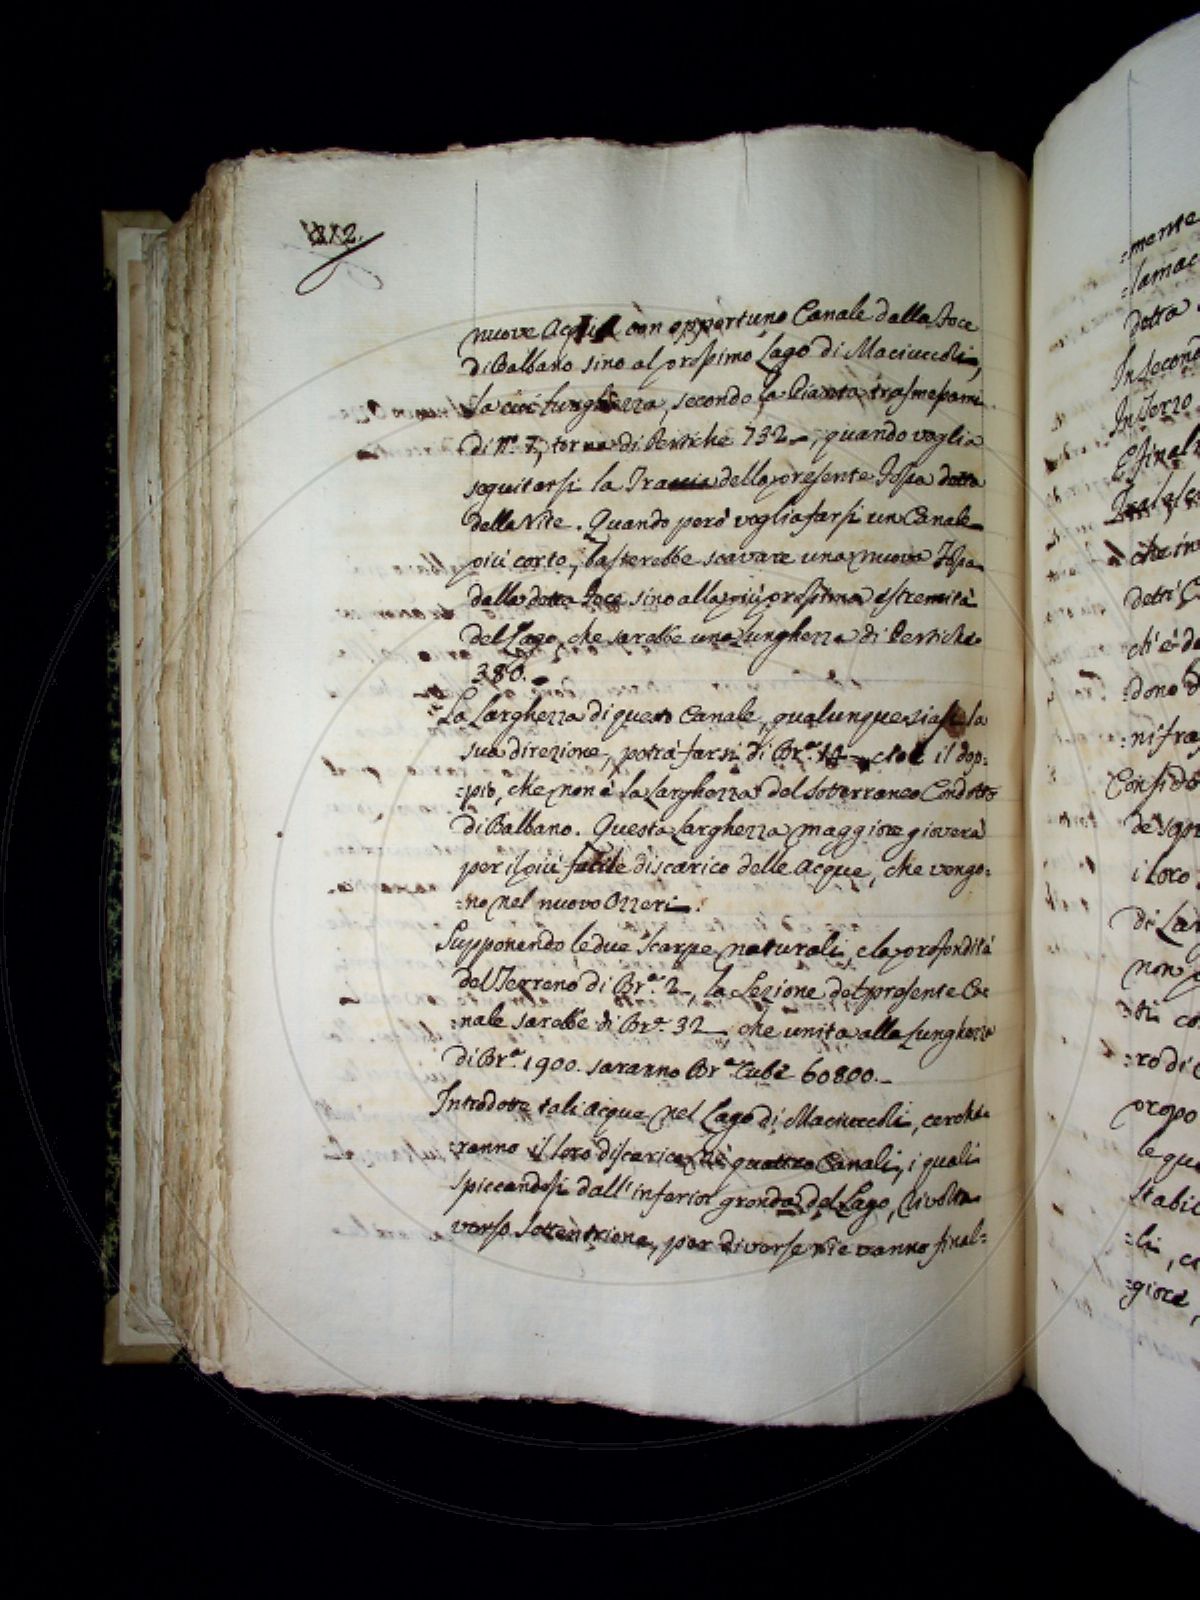 2.
nuove Acque con opportuno Canale dalla Foce
di Balbano sino al prossimo Lago di Maciuccoli,
la cui Lunghezza, secondo la Pianta trasmessami
di N.º 7, torna di Pertiche 732, quando voglia
seguitarsi la Traccia della presente Fossa detta
della Vite. Quando però voglia farsi un Canale
più corto, basterebbe scavare una nuova Fossa
dalla detta Foce sino alla più prossima estremità
del Lago, che sarebbe una Lunghezza di Pertiche
380.
La Larghezza di questo Canale, qualunque siasi la
sua direzione, potrà farsi di Br.ª 14, cioè il dop:
:pio, che non è la Larghezza del Sotterraneo Condotto
di Balbano. Questa Larghezza maggiore gioverà
per il più facile discarico delle Acque, che vengo:
:no nel nuovo Ozzeri.
Supponendo le due Scarpe naturali, e la profondità
del Terreno di Br.ª 2, la Sezione del presente Ca:
:nale sarebbe di Br.ª 32, che unita alla Lunghezza
di Br.ª 1900. saranno Br.ª Cube 60800.
Introdotte tali Acque nel Lago di Maciuccoli, cerche:
:ranno il loro discarico ne' quattro Canali, i quali
spiccandosi dall'inferior gronda del Lago, rivolta
verso Settentrione, per diverse Vie vanno final:
:mente
detta
In secondo
In Terzo
E final
che in
detti
ch'è de
:dono
Conside
i loro
di Lar
non
:ro di
propo
le qua
stabil
:giore,